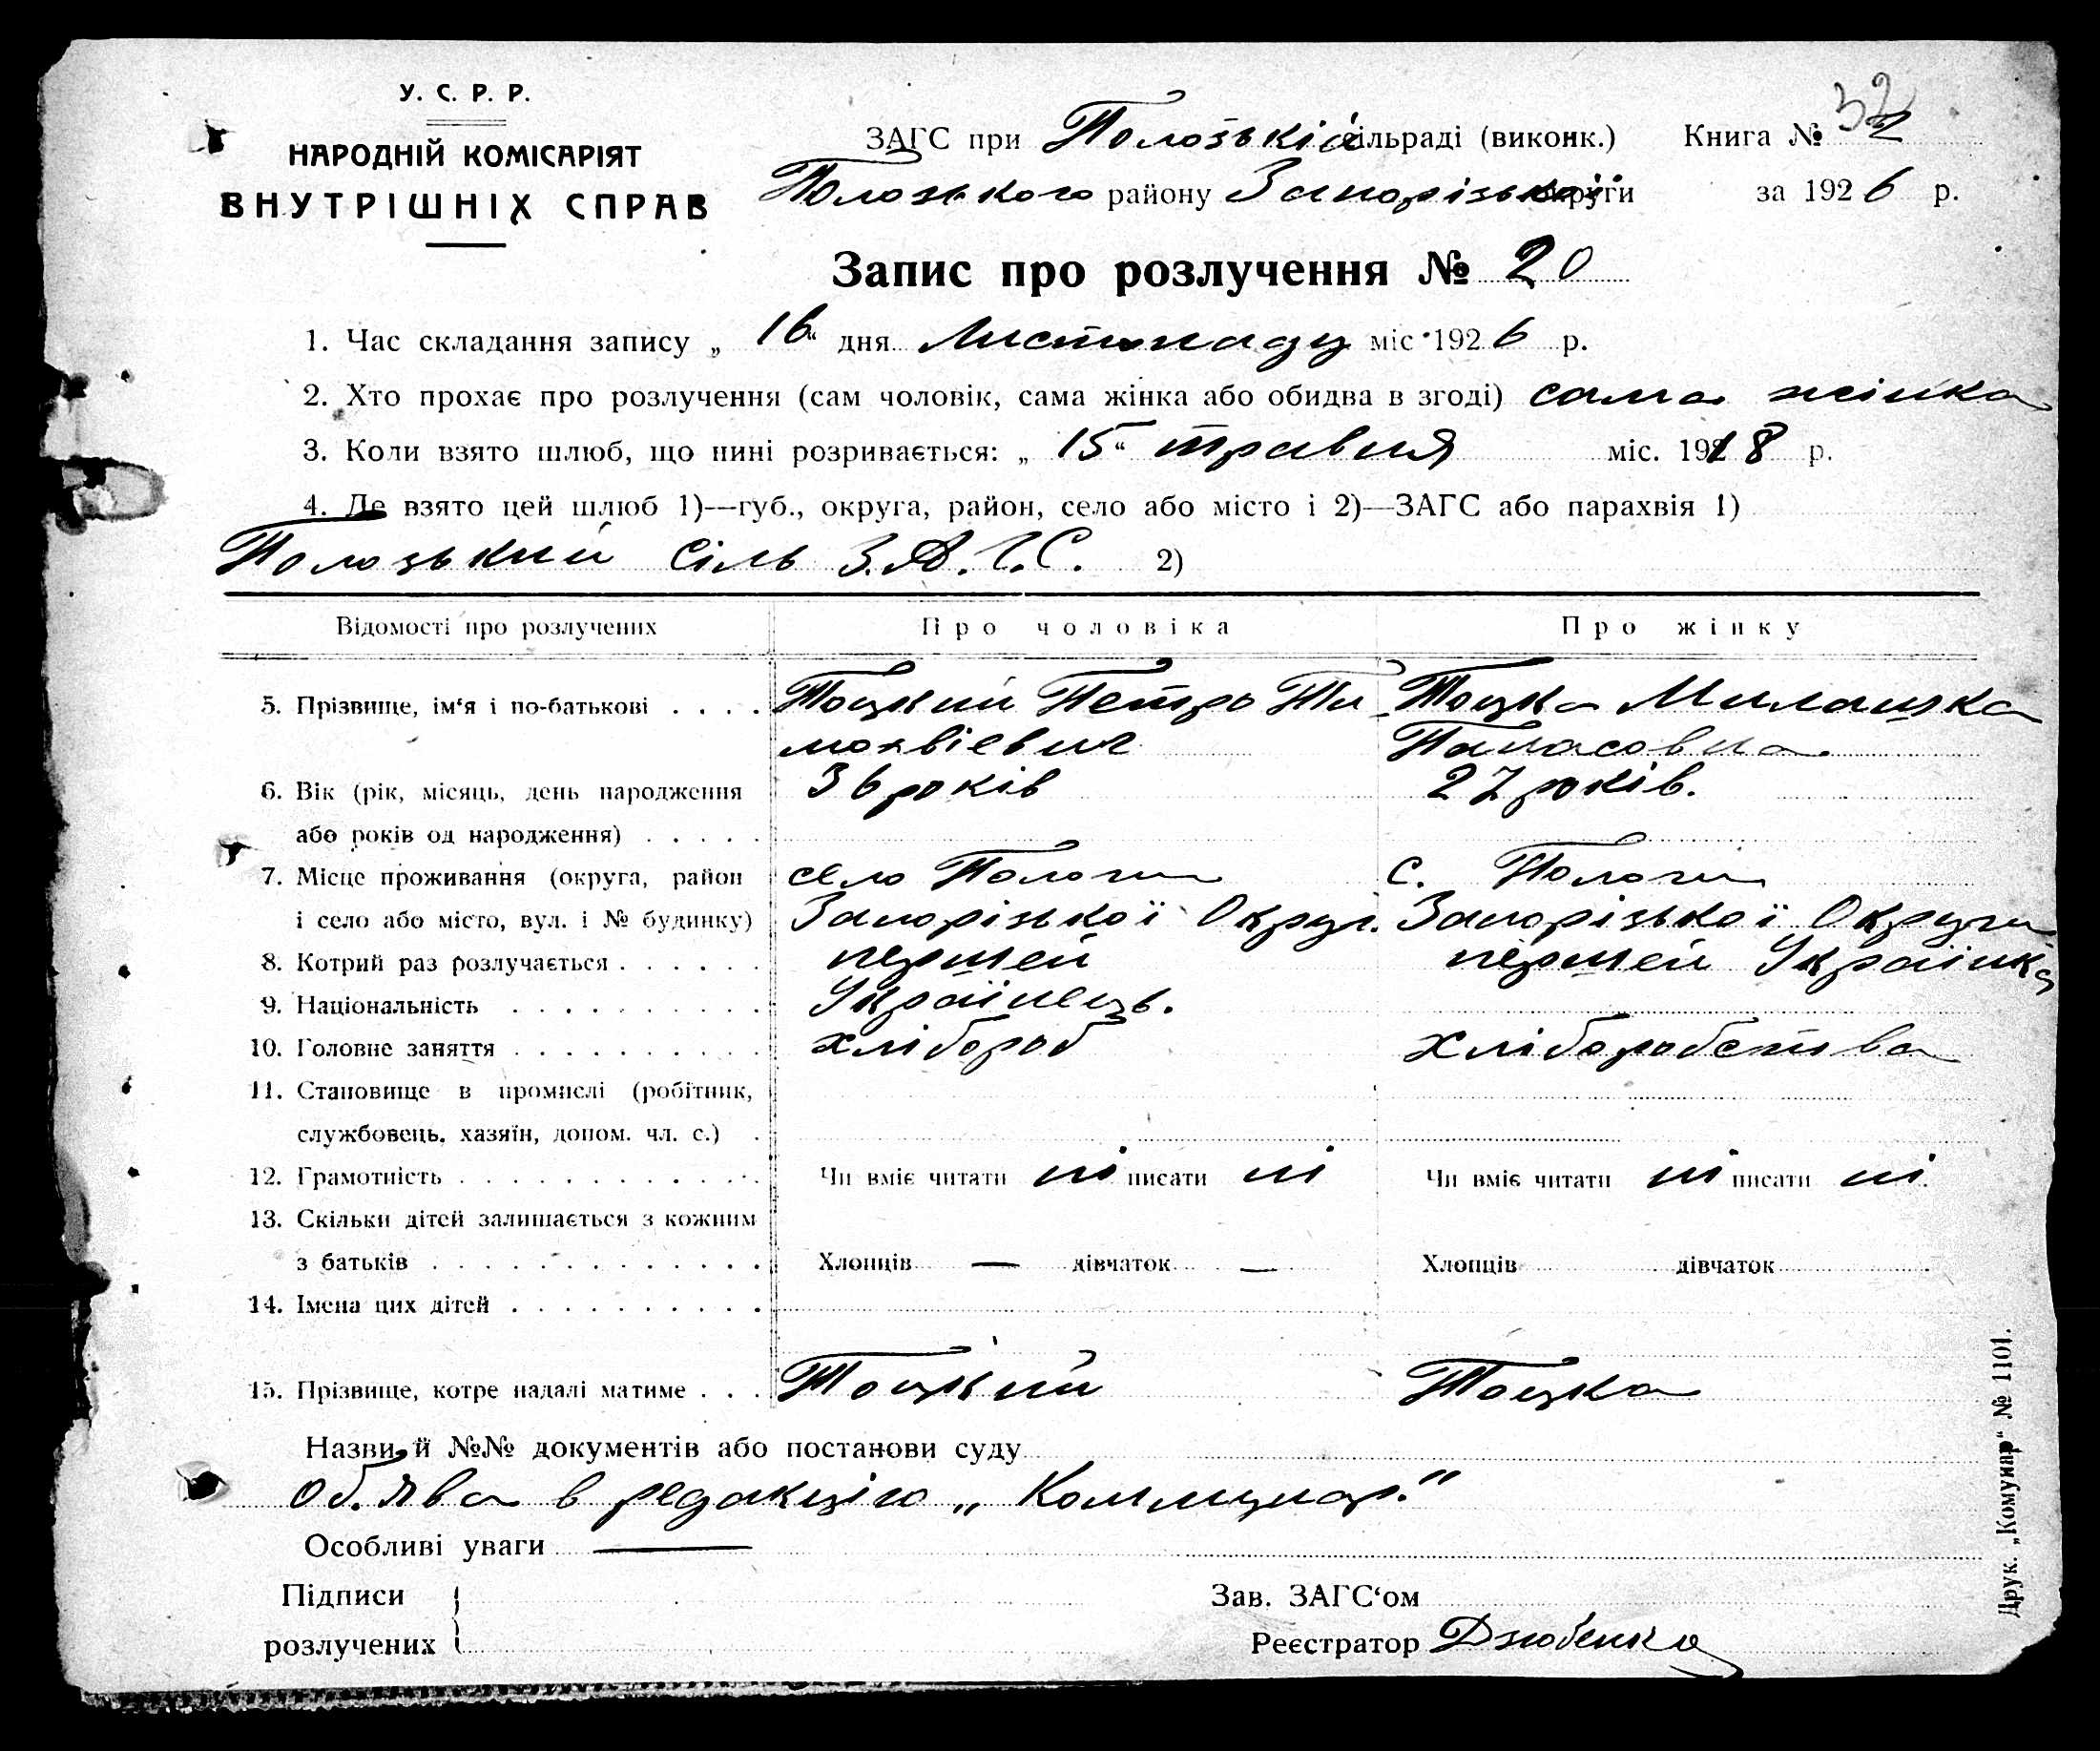 У. С. Р. Р.
НАРОДНІЙ КОМІСАРІЯТ
ВНУТРІШНІХ СПРАВ
ЗАГС при Полозькій сільраді (виконк.) Книга № 32
Полозького району Запорізької округи за 1926 р.
Запис про розлучення № 20
1. Час складання запису „ 16 “ дня Листопаду міс 1926 р.
2. Хто прохає про розлучення (сам чоловік, сама жінка або обидва в згоді) сама жінка
3. Коли взято шлюб, що нині розривається: „ 15 “ травня міс. 1918 р.
4. Де взято цей шлюб 1)—губ., округа, район, село або місто і 2)—ЗАГС або парахвія 1)
Полозький Сіль З.А.Г.С. 2)
Відомості про розлучених Про чоловіка Про жінку
5. Прізвище, ім‘я і по-батькові . . . . Тоцкий Петро Ти Тоцка Милашка
мохвієвич Панасовна
6. Вік (рік, місяць, день народження 36 років 27 років.
або років од народження) . . . . .
7. Місце проживання (округа, район село Пологи с. Пологи
і село або місто, вул. і № будинку) Запорізької Округ. Запорізької Округи
8. Котрий раз розлучається . . . . . . першей першей Українка
9. Національність . . . . . . . . . . Українець.
10. Головне заняття . . . . . . . . . . хлібороб хліборобства
11. Становище в промислі (робітник,
службовець, хазяїн, допом. чл. с.) .
12. Грамотність . . . . . . . . . . . . Чи вміє читати ні писати ні Чи вміє читати ні писати ні.
13. Скільки дітей залишається з кожним
з батьків . . . . . . . . . . . . . Хлопців — дівчаток — Хлопців дівчаток
14. Імена цих дітей . . . . . . . . . .
15. Прізвище, котре надалі матиме . . . Тоцкий Тоцка
Назви й №№ документів або постанови суду
об.ява в редакцію „Коммунар."
Особливі уваги —
Підписи Зав. ЗАГС‘ом
розлучених Реєстратор Дзюбенко
Друк. „Комунар“ № 1101.